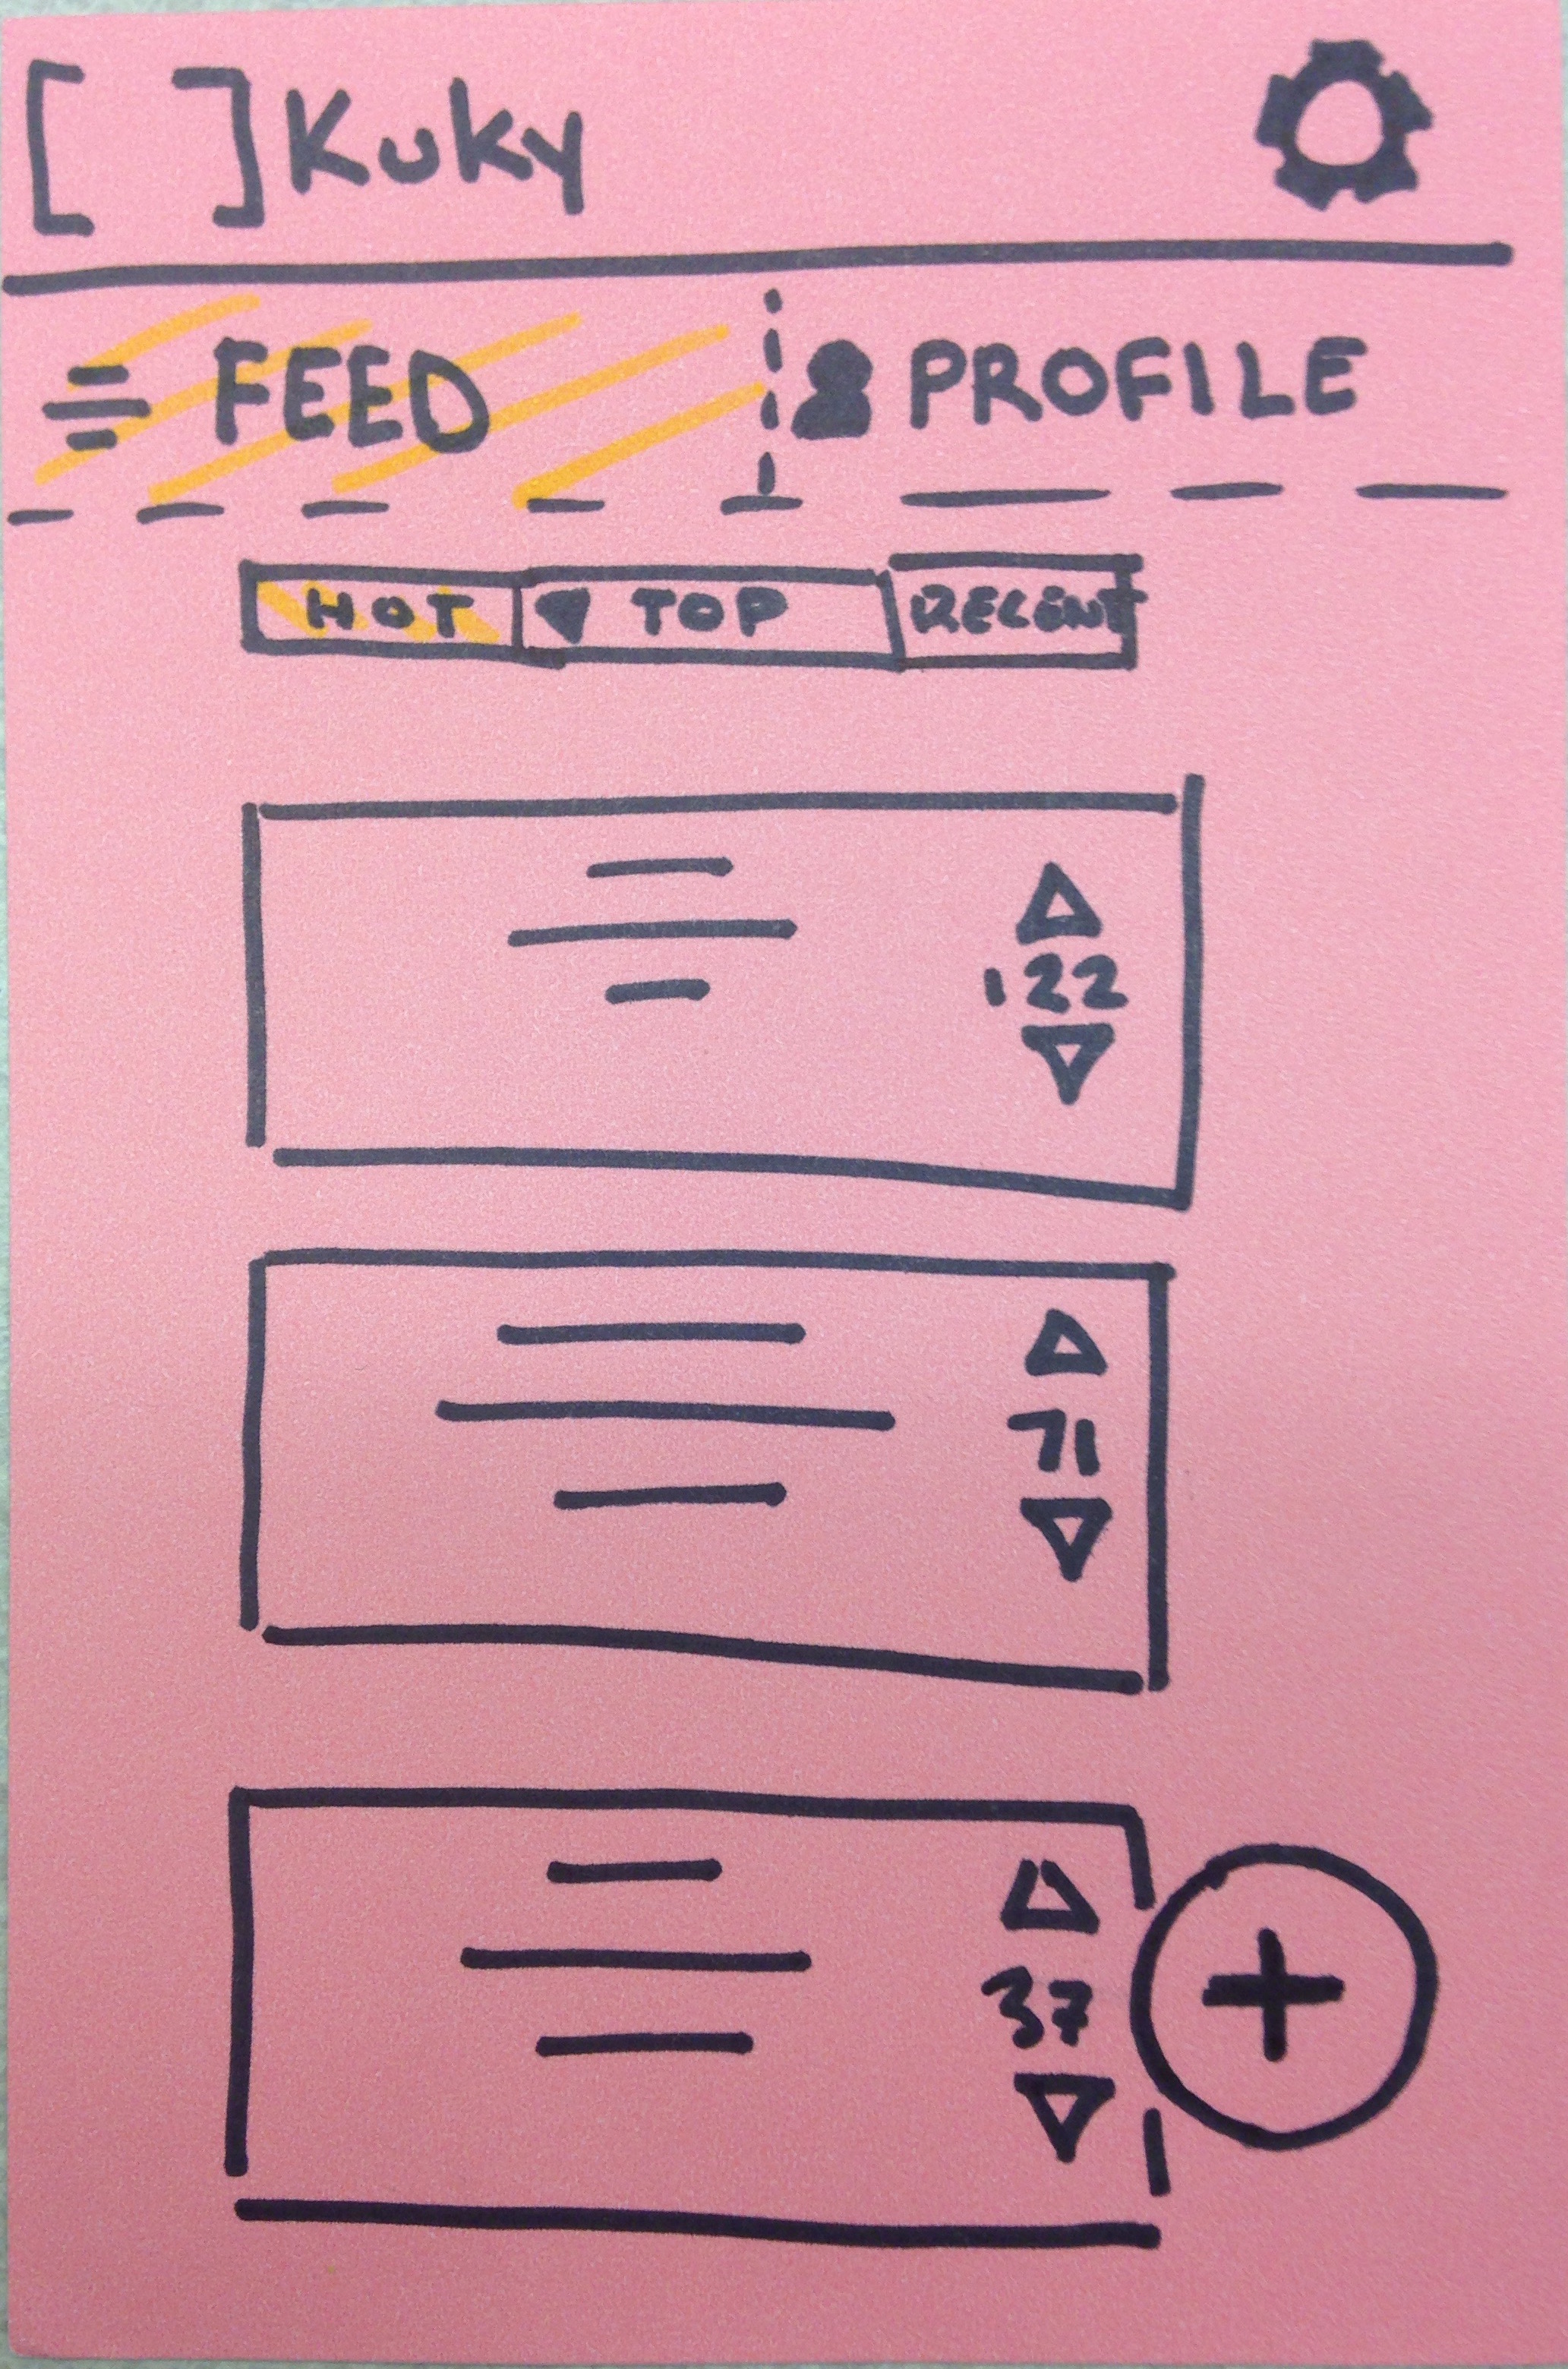 [ ] Kuky
FEED PROFILE
HOT TOP RECENT
122
71
37
+